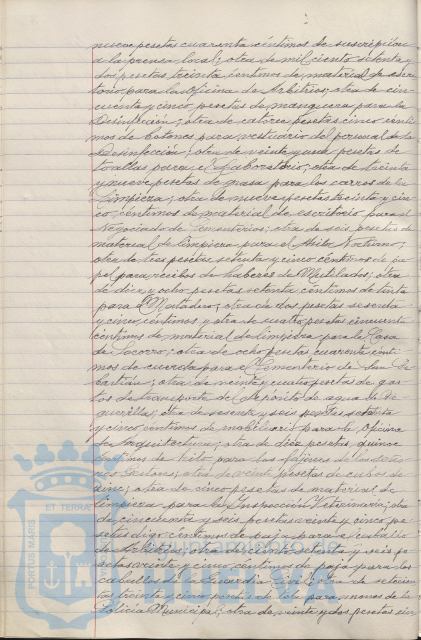 nueve pesetas cuarenta céntimos de suscripción
a la prensa local; otra de mil ciento setenta y
dos pesetas treinta céntimos de material de escri-
torio para la oficina de Arbitrios; otra de cin-
cuenta y cinco pesetas de manguera para la
Desinfección; otra de catorce pesetas cinco cénti-
mos de botones para vestuario del personal de la
Desinfección; otra de veinte y una pesetas de
toallas para el Laboratorio; otra de treinta
y nueve pesetas de grasa para los carros de la
Limpieza; otra de nueve pesetas treinta y cin-
co céntimos de material de escritorio para el
Negociado de Cementerios; otra de seis pesetas de
material de limpieza para el Asilo Nocturno;
otra de tres pesetas setenta y cinco céntimos de pa-
pel para recibos de haberes de Mutilados; otra
de diez y ocho pesetas setenta céntimos de tinta
para el Matadero; otra de dos pesetas sesenta
y cinco céntimos, y otra de cuatro pesetas cincuenta
céntimos de material de limpieza para la Casa
de Socorro; otra de ocho pesetas cuarenta cénti-
mos de cuerda para el Cementerio de San Se-
bastián; otra de veinte y cuatro pesetas de gas-
tos de transporte del Depósito de agua de
otra de sesenta y seis pesetas setenta
y cinco céntimos de mobiliario para la Oficina
de Arquitectura; otra de diez pesetas quince
céntimos de hilo para los
otra de veinte pesetas de cubos de
zinc; otra de cinco pesetas de material de
limpieza para la Inspección Veterinaria; otra
de cincuenta y seis pesetas veinte y cinco pe-
setas digo céntimos de paja para el caballo
de Arbitrios; otra de ciento setenta y seis pe-
setas veinte y cinco céntimos de paja para los
caballos de la Guardia Civil; otra de setecien-
tas treinta y cinco pesetas de tela para monos de la
Policía Municipal; otra de veinte y dos pesetas cin-
PORTUS MARIS
ET TERRAE
Ayuntamiento de